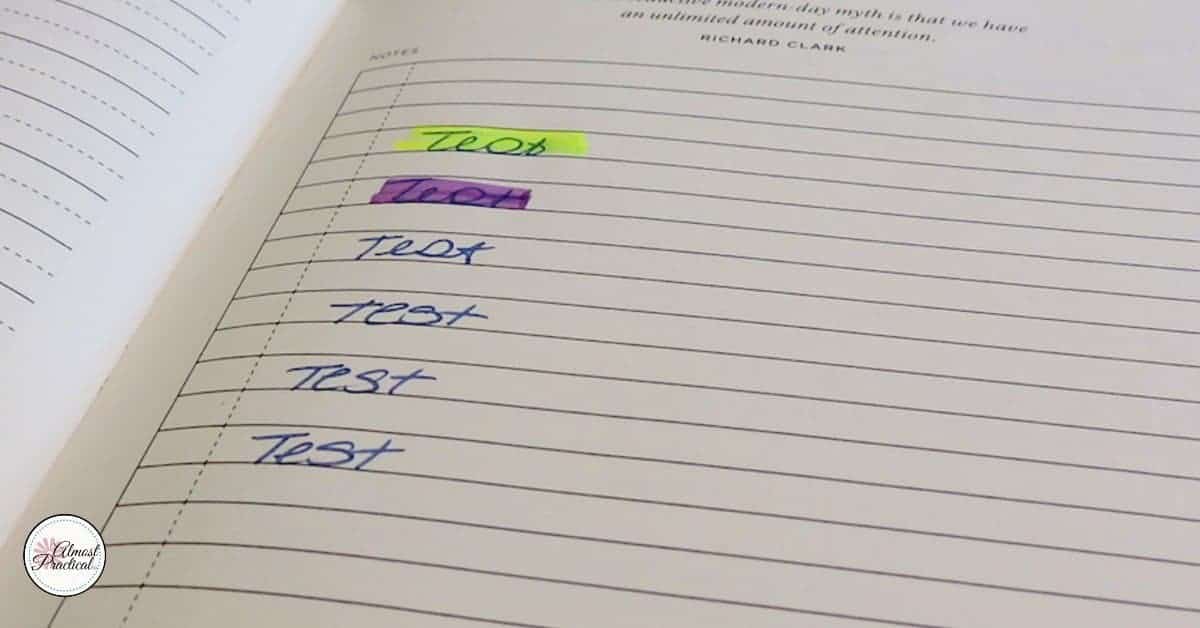 modern-day myth is that we have
an unlimited amount of attention.
RICHARD CLARK
NOTES
Test
Test
Test
test
Test
Test
Almost
Practical